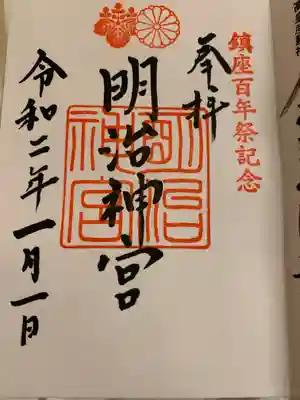 鎮座百年祭記念
奉拝
明治神宮
明治
神宮
令和二年一月一日